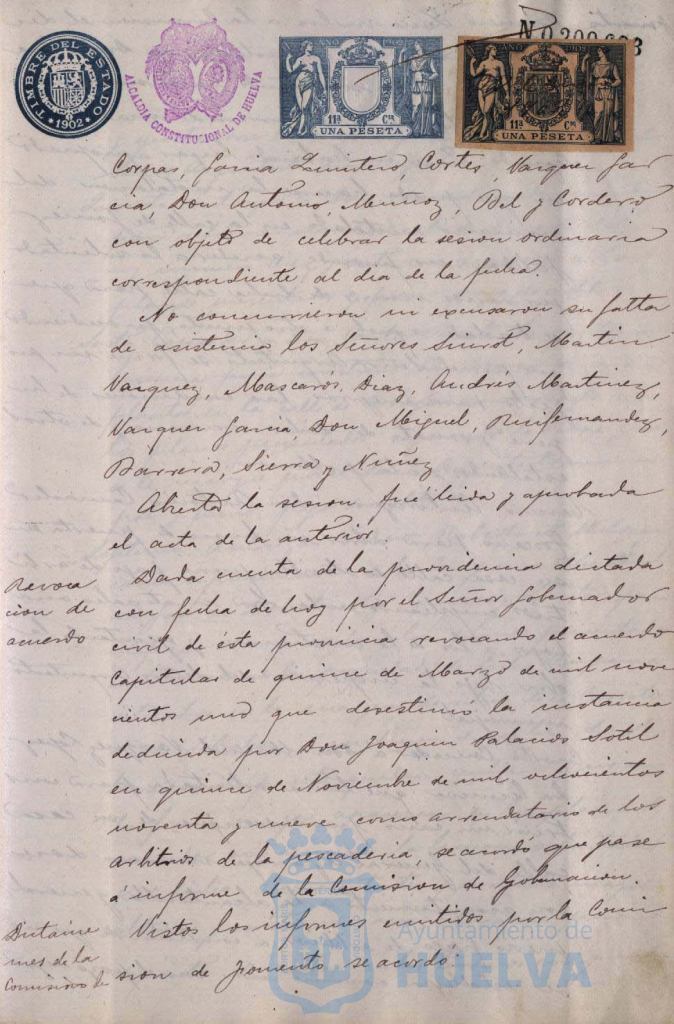 TIMBRE DEL ESTADO
*1902*
ALCALDÍA CONSTITUCIONAL DE HUELVA
AÑO 1902
11ª Cᴱ
UNA PESETA
AÑO 1902
11ª Cᴱ
UNA PESETA
N 0.200.
Corpas, Garcia Quintero, Cortes, Vazquez Gar
cia, Don Antonio, Muñoz, Bel y Cordero,
con objeto de celebrar la sesion ordinaria
correspondiente al dia de la fecha.
No concurrieron ni excusaron su falta
de asistencia los Señores Sinrot, Martin
Vazquez, Mascarós, Diaz, Andrés Martinez,
Vazquez Garcia, Don Miguel, Ruifernandez,
Barrera, Sierra y Nuñez
Abierta la sesion fué leida y aprobada
el acta de la anterior.
Revoca
cion de
acuerdo
Dada cuenta de la providencia dictada
con fecha de hoy por el Señor Gobernador
civil de ésta provincia revocando el acuerdo
Capitular de quince de Marzo de mil nove
cientos uno que desestimó la instancia
deducida por Don Joaquin Palacios Sotil
en quince de Noviembre de mil ochocientos
noventa y nueve como arrendatario de los
arbitrios de la pescaderia, se acordó que pase
á informe de la Comision de Gobernacion.
Dictáme
nes de la
Comision de
Vistos los informes emitidos por la Comi
sion de Fomento se acordó:
Ayuntamiento de
HUELVA